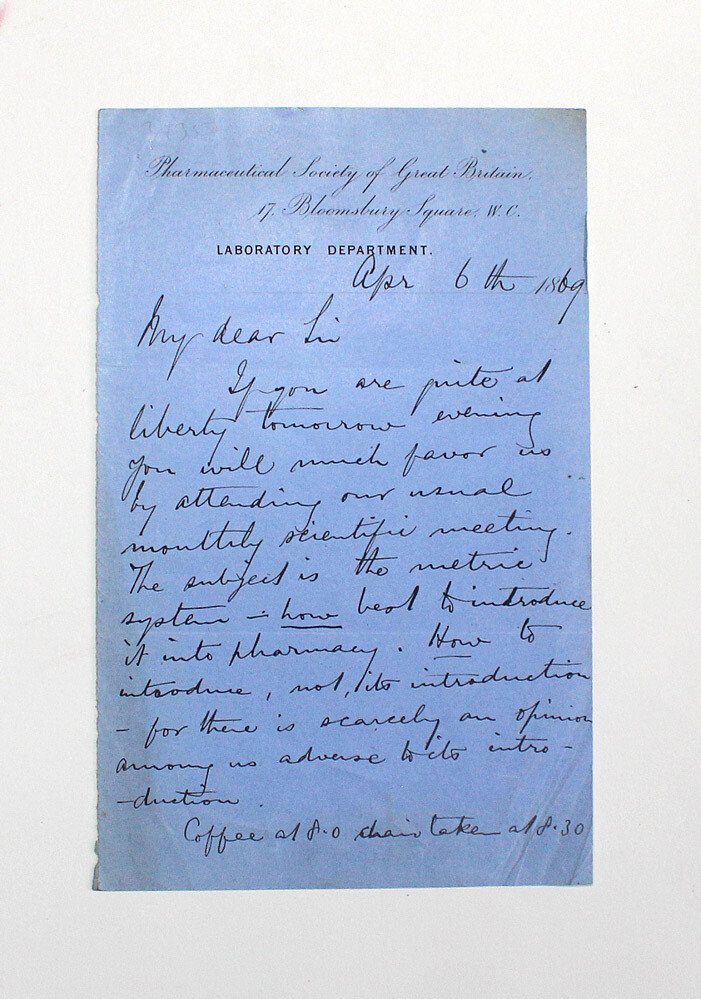 Pharmaceutical Society of Great Britain.
17, Bloomsbury Square, W.C.
LABORATORY DEPARTMENT.
Apr 6th 1869
My dear Sir
If you are quite at
liberty tomorrow evening
you will much favor us
by attending our usual
monthly scientific meeting.
The subject is the metric
system – how best to introduce
it into pharmacy. How to
introduce, not, its introduction
– for there is scarcely an opinion
among us adverse to its intro-
-duction.
Coffee at 8.0 chair taken at 8.30